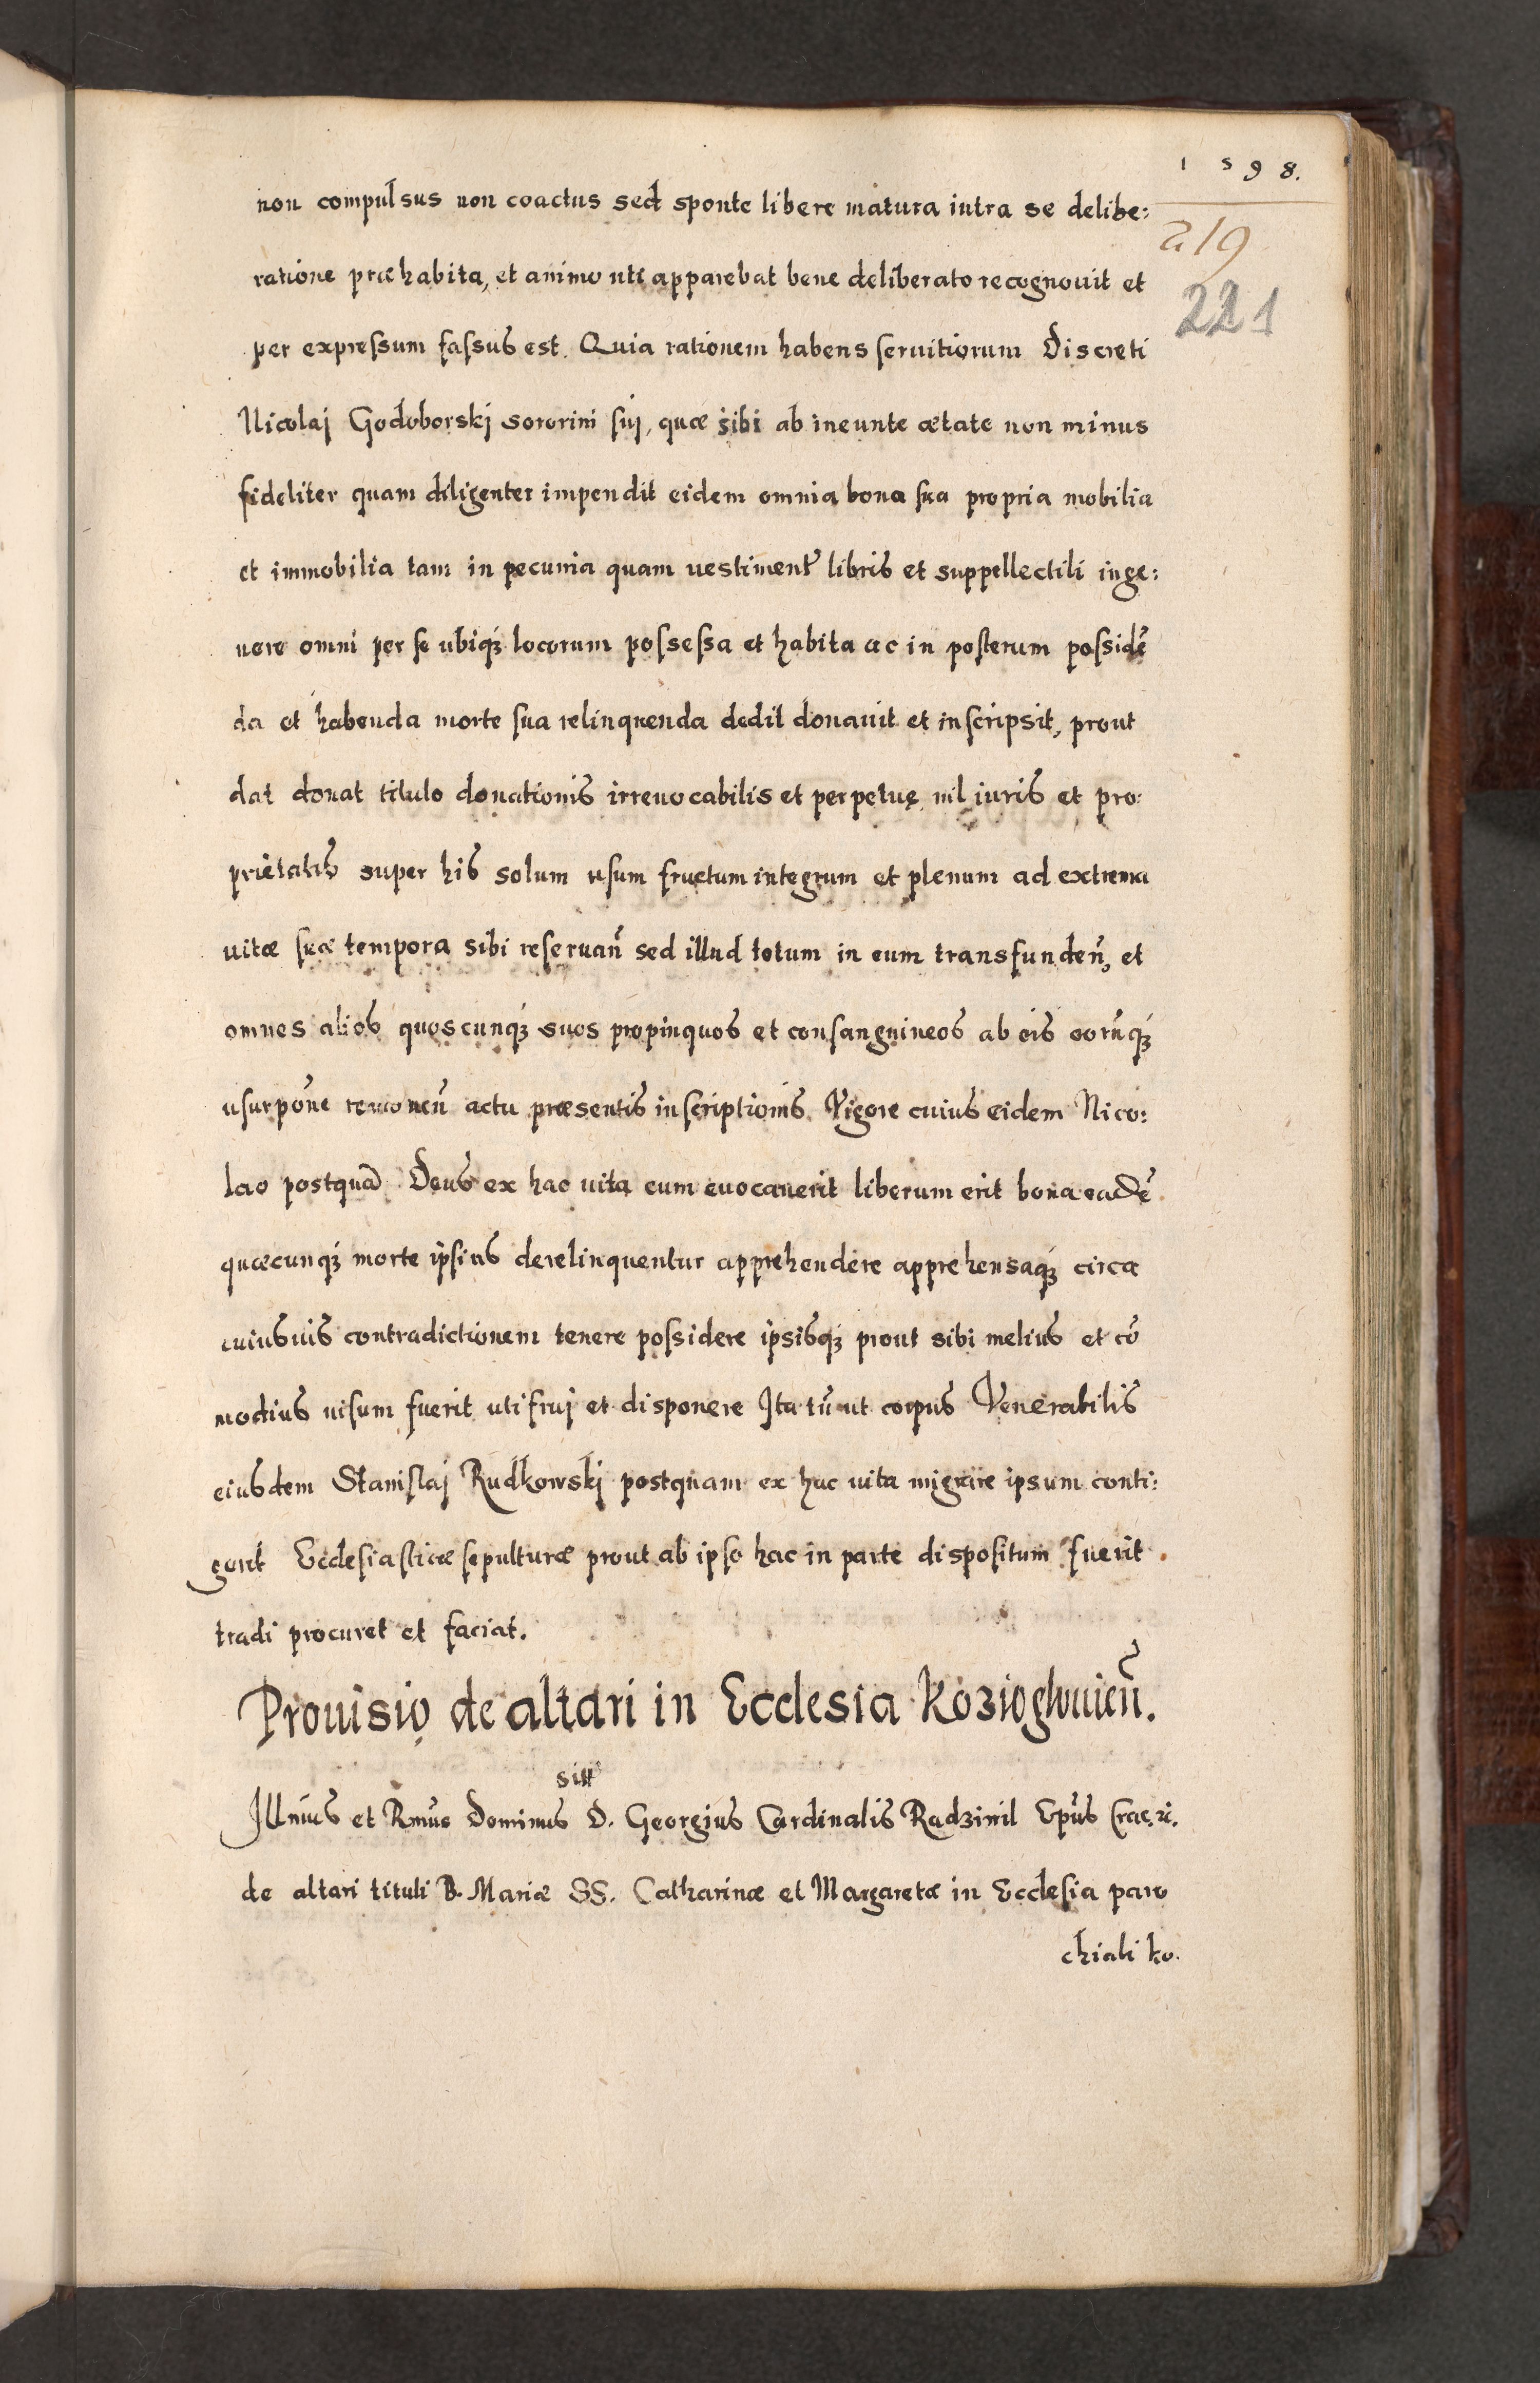 1598.
219
221
non compulsus non coactus sed sponte libere matura intra se delibe:
ratione præhabita, et animo uti apparebat bene deliberato recognouit et
per expressum fassus est. Quia rationem habens seruitiorum Discreti
Nicolaj Godoborskj sororini suj, quæ sibi ab ineunte ætate non minus
fideliter quam diligenter impendit eidem omnia bona sua propria mobilia
et immobilia tam in pecunia quam uestiment̃ libris et suppellectili inge:
nere omni per se ubiqȝ locorum possessa et habita ac in posterum possidẽ
da et habenda morte sua relinquenda dedit donauit et inscripsit, prout
dat donat titulo donationis irreuocabilis et perpetuę nil iuris et pro:
prietatis super his solum usum fructum integrum et plenum ad extrema
uitæ suæ tempora sibi reseruañ sed illud totum in eum transfundeñ, et
omnes alios quoscunqȝ suos propinquos et consanguineos ab eis eorũqȝ
usurpõne remoueñ actu præsentis inscriptionis. Vigore cuius eidem Nico:
lao postquã Deus ex hac uita eum euocauerit liberum erit bona eadẽ
quæcunqȝ morte ipsius derelinquentur apprehendere apprehensaqȝ circa
cuiusuis contradictionem tenere possidere ipsisqȝ prout sibi melius et cõ
modius uisum fuerit uti fruj et disponere Ita tñ ut corpus Venerabilis
eiusdem Stanislaj Rudkowskj postquam ex hac uita migrare ipsum conti:
gerit Ecclesiasticæ sepulturæ prout ab ipso hac in parte dispositum fuerit
tradi procuret et faciat.
Prouisio de altari in Ecclesia Kozioglouieñ.
Illmus et Rmus Dominus D. Georgius Cardinalis Radziuil Epus Crac. etc.
de altari tituli B. Mariæ SS. Catharinæ et Margaretæ in Ecclesia paro
chiali ko.